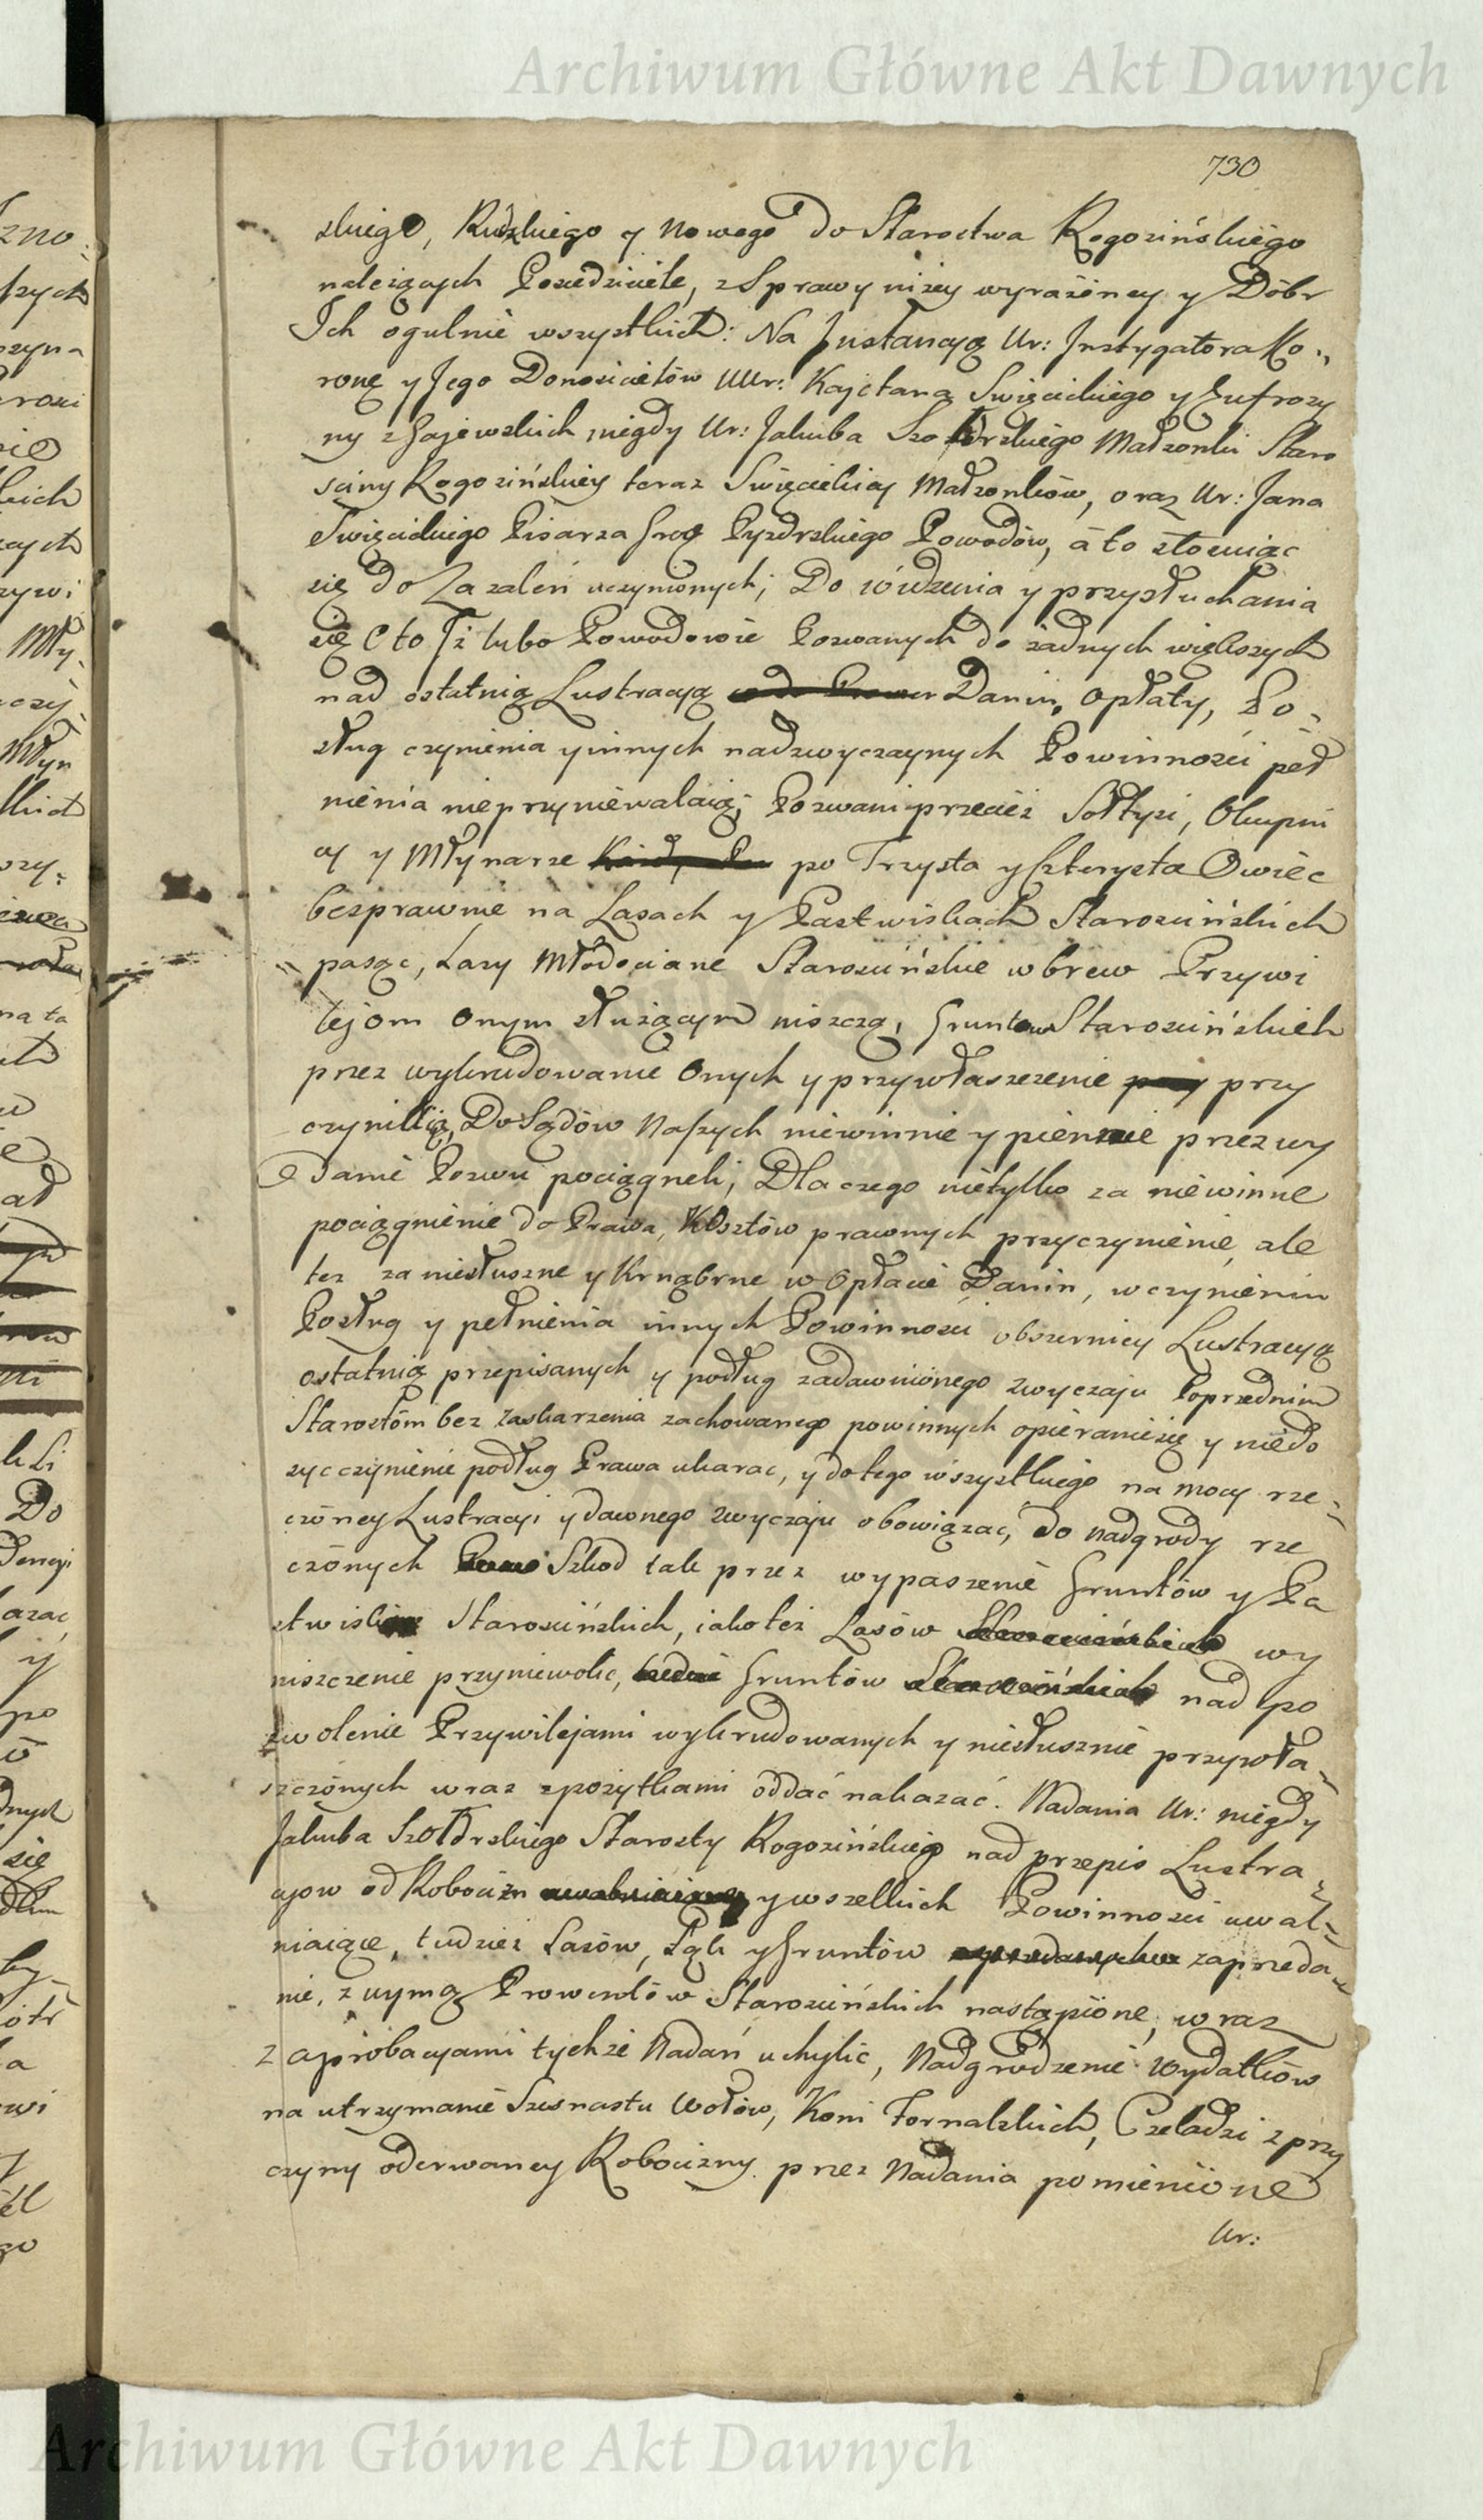 Archiwum Główne Akt Dawnych
730
skiego, Rudzkiego y Nowego do Starostwa Rogozińskiego
należących Posiedziciele, z Sprawy niżey wyrażoney y Dóbr
Ich ogulnie wszystkich: Na Instancyą Ur: Instygatora Ko„
ronę y Jego Donosicielów UUr: Kajetana Swięcickiego y Eufrozy
ny z Gajewskich niegdy Ur: Jakuba Szołdrskiego Małżonki Staro
sciny Rogozińskiey teraz Swięcickiey Małżonków, oraz Ur: Jana
Swięcickiego Pisarza Grog Pyzdrskiego Powodów, á to stosuiąc
się do Zażaleń uczynionych; Do widzenia y przysłuchania
się Oto Jż lubo Powodowie Pozwanych do żadnych większych
nad ostatnią Lustracyą Danin, Opłaty, Po-
sług czynienia y innych nadzwyczaynych Powinności peł
nienia nieprzyniewalaią; Pozwani przecież Sołtysi, Okupni
cy y Młynarze po Trzysta y Czterysta Owiec
bezprawnie na Lasach y Pastwiskach Starościńskich
pasąc, Lasy Młodociane Starościńskie wbrew Przywi
lejom Onym służącym niszczą, Gruntow Starościńskich
przez wykrudowanie Onych y przywłaszczenie przy
czynili, Do Sądów Naszych niewinnie y pieniie przez wy
danie Pozwu pociągneli; Dlaczego nietylko za niewinne
pociągnienie do Prawa, Kosztów prawnych przyczynienie, ale
też za niesłuszne y Krnąbrne w Opłacie Danin, w czynieniu
Posług y pełnienia innych Powinności obszerniey Lustracyą
ostatnią przepisanych y podług zadawnionego zwyczaju Poprzednim
Starostóm bez zaskarzenia zachowanego powinnych opieraniesię y niedo
syc czynienie podług Prawa ukarac, y do tego wszystkiego na mocy rze-
czoney Lustracyi y dawnego zwyczaju obowiązac, do nadgrody rze
czonych Szkod tak przez wypaszenie Gruntów y Pa
stwisk Starościńskich, iako też Lasów wy
niszczenie przyniewolic, Gruntów nad po
zwolenie Przywilejami wykrudowanych y niesłusznie przywła-
szczonych wraz z pożytkami oddać nakazać. Nadania Ur: niegdy
Jakuba Szołdrskiego Starosty Rogozińskiego nad przepis Lustra-
cyow od Robocizn y wszelkich Powinności uwal-
niaiące, tudzież Lasów, Łąk y Gruntów zaprzeda-
nie, z uymą Prowentów Starościńskich nastąpione, wraz
z aprobacyami tychże Nadań uchylic, Nadgrodzenie wydatków
na utrzymanie Szesnastu Wołów, Koni Fornalskich, Czeladzi z przy
czyny oderwaney Robocizny przez Nadania pomienione
Ur:
Archiwum Główne Akt Dawnych